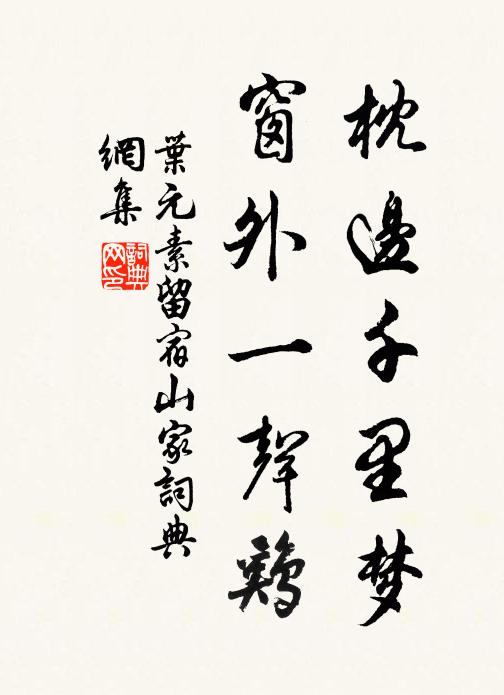 枕邊千里梦
窗外一聲鷄
葉元素留宿山家詞典
網集
詞典网印